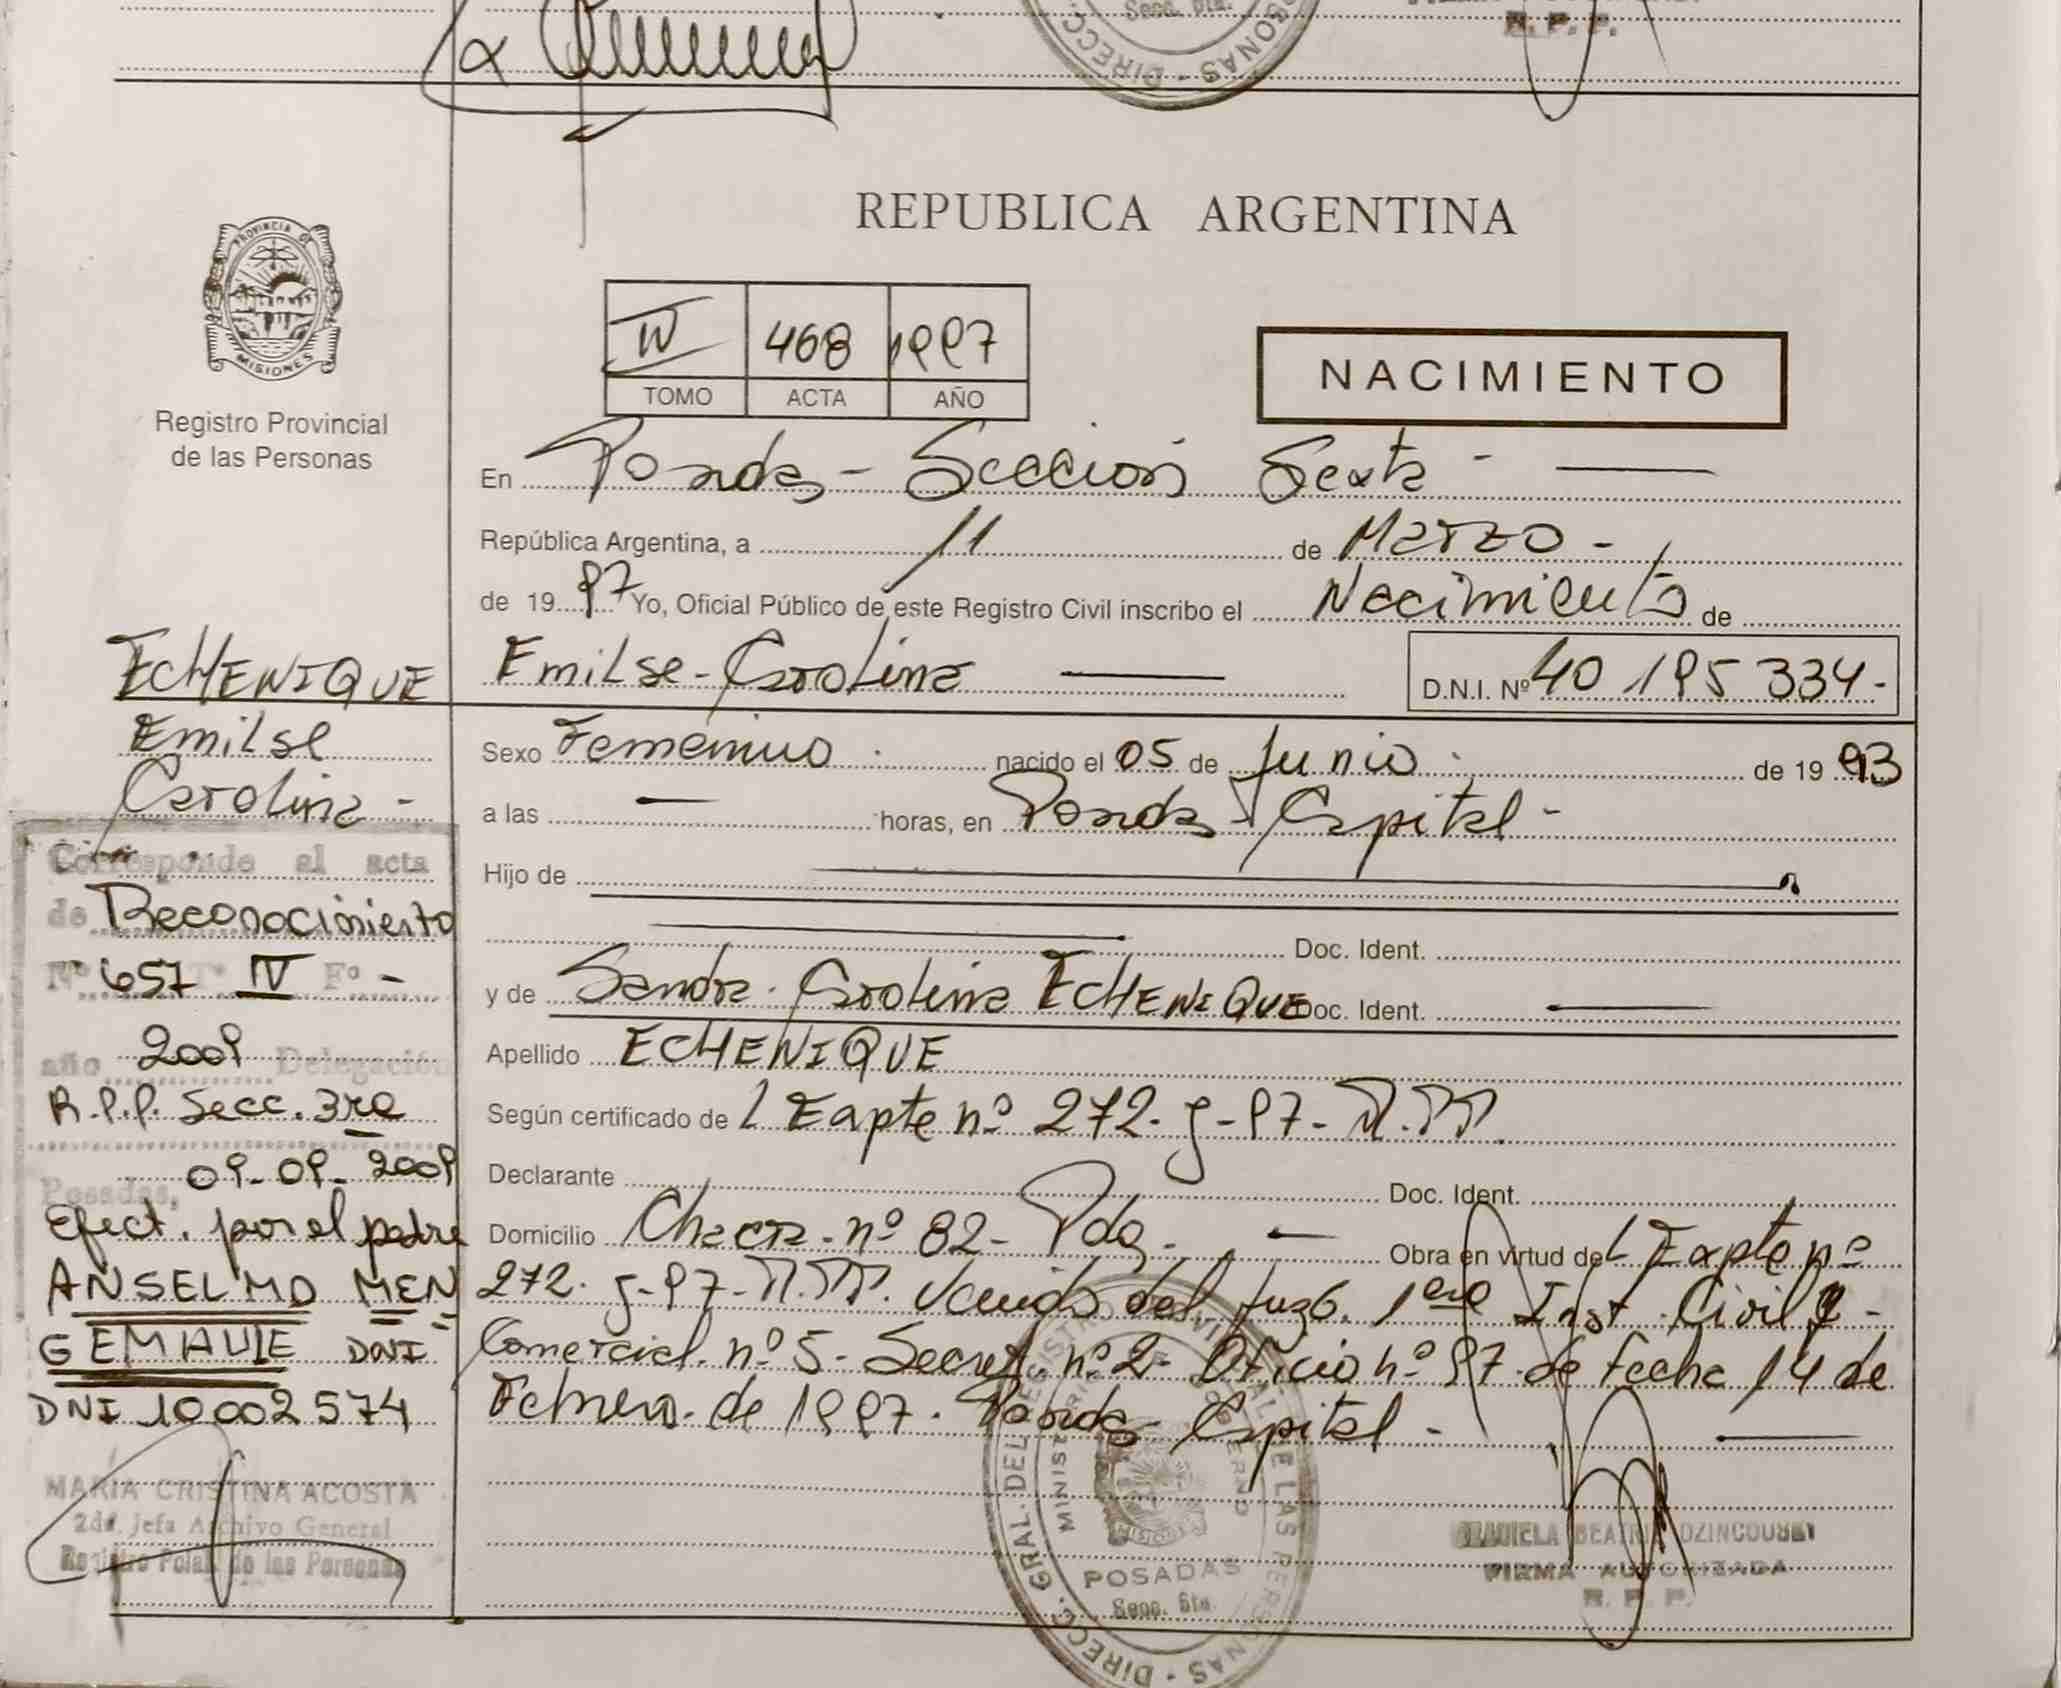 Secc. 6ta.
DIRECC. PERSONAS
R. P. P.
REPUBLICA ARGENTINA
PROVINCIA DE MISIONES
Registro Provincial
de las Personas
IV 468 1997
TOMO ACTA AÑO
NACIMIENTO
En Posadas - Sección Sexta -
República Argentina, a 11 de Marzo -
de 1997 Yo, Oficial Público de este Registro Civil inscribo el Nacimiento de
Emilse - Carolina D.N.I. Nº 40 195 334 -
ECHENIQUE
Emilse
Carolina -
Sexo Femenino. nacido el 05 de Junio. de 1993
a las — horas, en Posadas - Capital -
Hijo de
Doc. Ident.
y de Sandra Carolina ECHENIQUE Doc. Ident. —
Apellido ECHENIQUE
Según certificado de L Expte nº 272 - J - 97 -
Declarante Doc. Ident.
Domicilio Chacra - nº 82 - Pdas. — Obra en virtud de L Expte nº
272 - J - 97 - Venido del Juzg. 1era Inst. Civil y -
Comercial nº 5 - Secret nº 2 - Oficio nº 97 - de fecha 14 de
Febrero de 1997 - Posadas - Capital -
Corresponde al acta
de Reconocimiento
Nº 657 Tº IV Fº -
año 2009 Delegación
R.P.P. Secc. 3ra
Posadas, 09-09-2009
Efect. por el padre
ANSELMO MEN
GEMAULE DNI
DNI 10002574
MARIA CRISTINA ACOSTA
2da. Jefa Archivo General
Registro Pcial. de las Personas
DIRECC. GRAL. DEL REGISTRO PROVINCIAL DE LAS PERSONAS
MINISTERIO DE GOBIERNO
MISIONES
POSADAS
Secc. 6ta.
FIRMA AUTORIZADA
R. P. P.